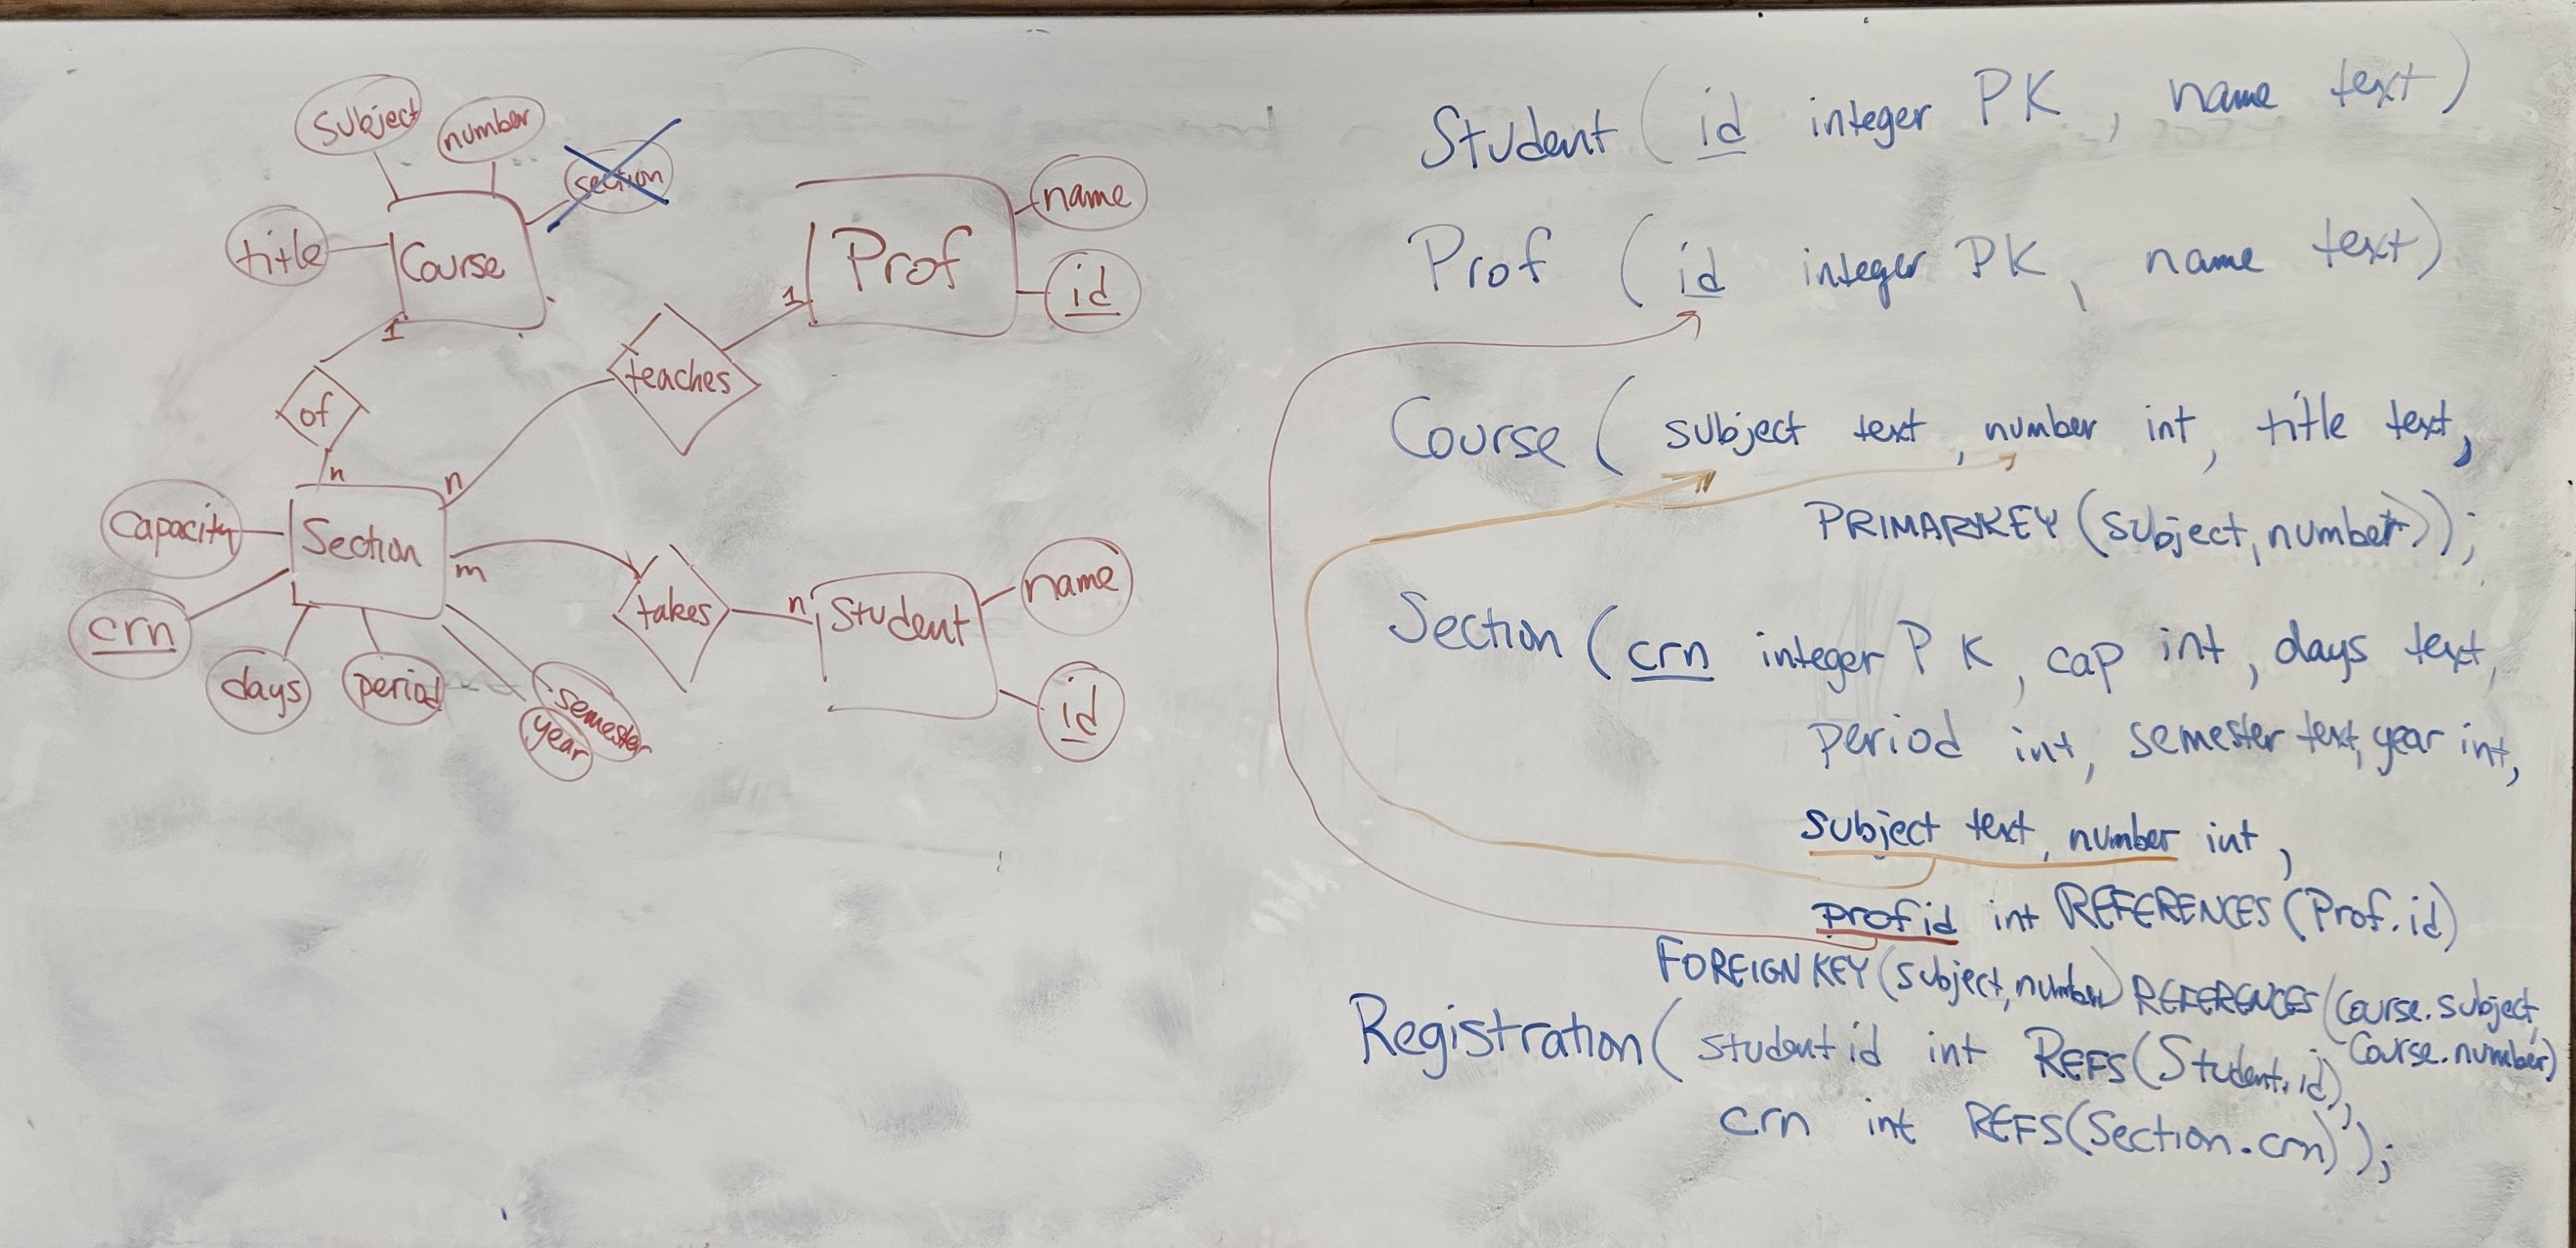 subject
number
section
title
Course
1
of
n
Prof
name
id
1
teaches
n
Section
capacity
crn
days
period
semester
year
m
takes
n
Student
name
id
Student ( id integer PK, name text)
Prof ( id integer PK, name text)
Course ( subject text, number int, title text,
PRIMARYKEY (subject, number));
Section ( crn integer PK, cap int, days text,
period int, semester text, year int,
subject text, number int,
profid int REFERENCES (Prof.id)
FOREIGN KEY (subject, number) REFERENCES (Course.subject,
Course.number)
Registration ( student id int REFS (Student.id),
crn int REFS (Section.crn));